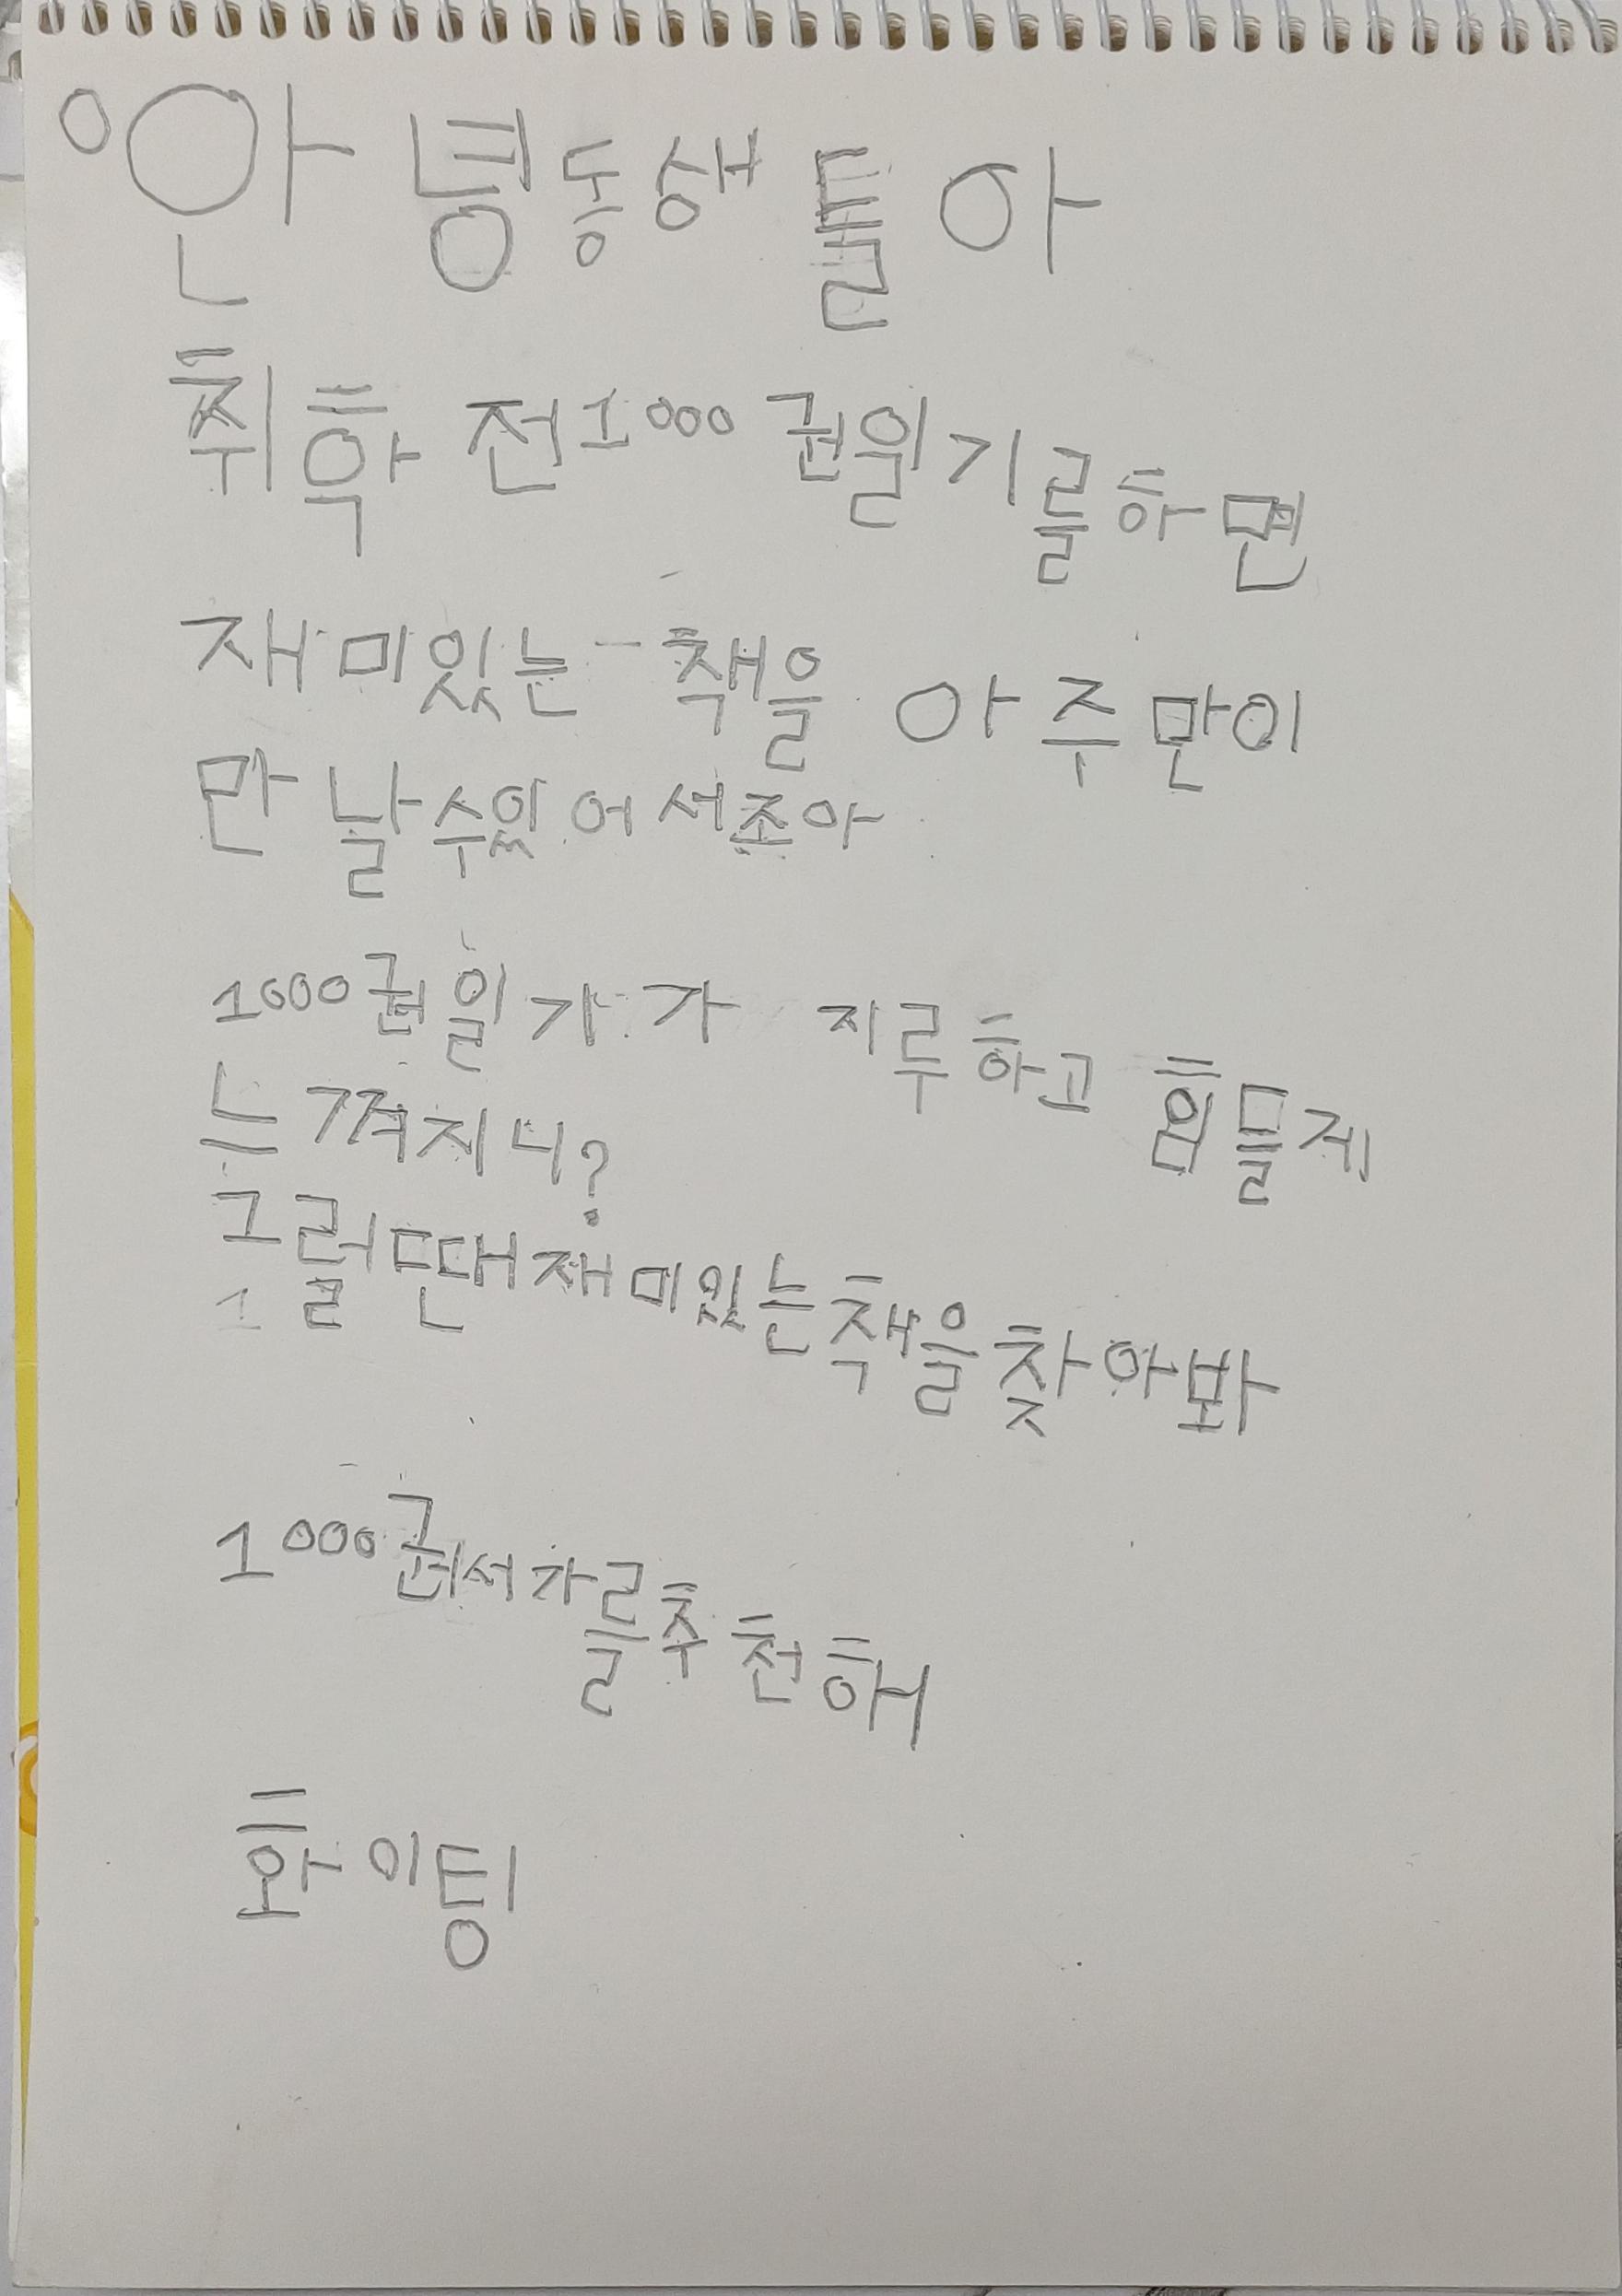 안녕동생들아
취학 전 1000권읽기를하면
재미있는 책을 아주만이
만날수있어서조아
1000권일가가 지루하고 힘들게
느껴지니?
그럴땐재미있는책을찾아봐
1000권서가를추천해
화이팅